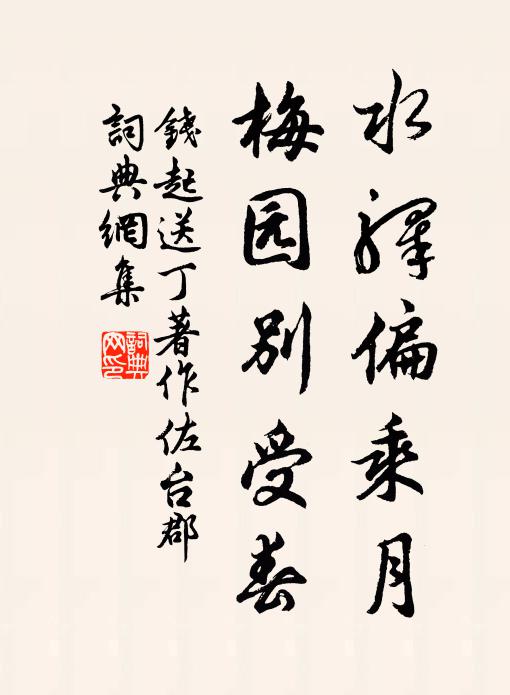 水驛偏乘月
梅园別受春
錢起送丁著作佐台郡
詞典網集
詞典
网印